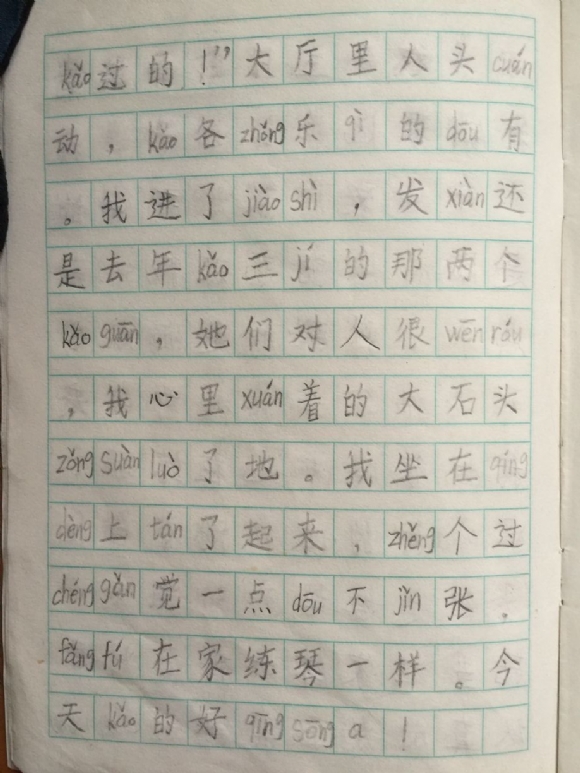 kǎo过的!”大厅里人头cuán
动，kǎo各zhǒng乐qì的dōu有
。我进了jiào shì，发xiàn还
是去年kǎo三jí的那两个
kǎo guān，她们对人很wēn róu
，我心里xuán着的大石头
zǒng suàn luò了地。我坐在qíng
dèng上tán了起来，zhěng个过
chéng gǎn觉一点dōu不jǐn张.
fǎng fú在家练琴一样。今
天kǎo的好qīng sōng a！